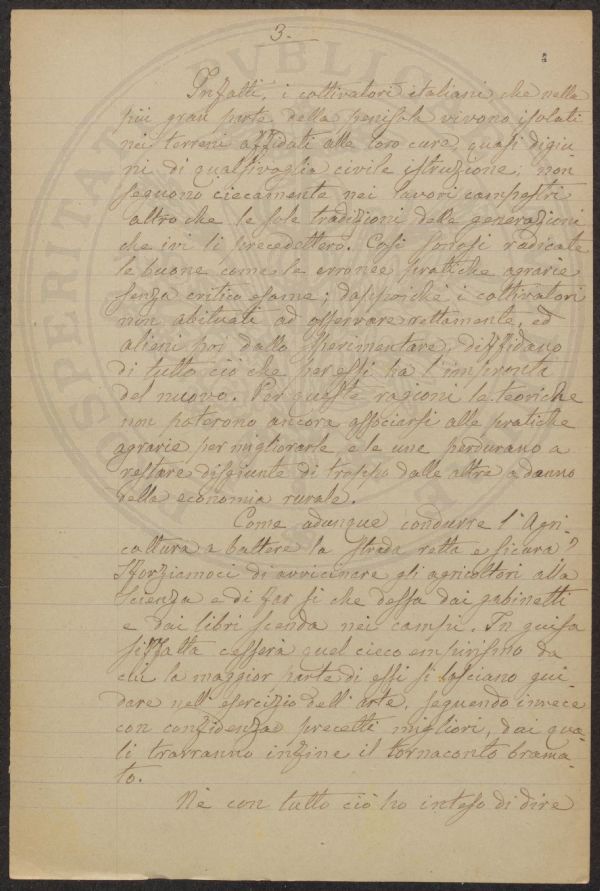 3.
Infatti, i coltivatori italiani che nella
più gran parte della penisola vivono isolati
nei terreni affidati alle loro cure, quasi digiu-
ni di qualsivoglia civile istruzione, non
seguono ciecamente nei lavori campestri
altro che le sole tradizioni delle generazioni
che ivi li precedettero. Così sonosi radicate
le buone come le erronee pratiche agrarie
senza critico esame; dappoichè i coltivatori
non abituati ad osservare rettamente, ed
alieni poi dallo sperimentare, diffidano
di tutto ciò che per essi ha l'impronta
del nuovo. Per queste ragioni le teoriche
non poterono ancora associarsi alle pratiche
agrarie per migliorarle e le une perdurano a
restare disgiunte di troppo dalle altre a danno
della economia rurale.
Come adunque condurre l'Agri-
coltura a battere la strada retta e sicura?
Sforziamoci di avvicinare gli agricoltori alla
Scienza e di far sì che dessa dai gabinetti
e dai libri scenda nei campi. In guisa
siffatta cesserà quel cieco empirismo da
cui la maggior parte di essi si lasciano gui-
dare nell'esercizio dell'arte, seguendo invece
con confidenza precetti migliori, dai qua-
li trarranno infine il tornaconto brama-
to.
Nè con tutto ciò ho inteso di dire